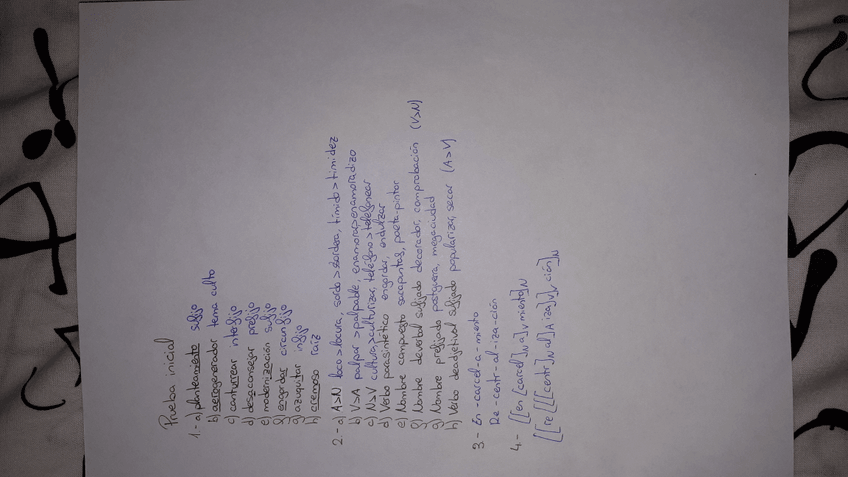 Prueba inicial
1.- a) planteamiento sufijo
b) aerogenerador tema culto
c) canturrear interfijo
d) desaconsejar prefijo
e) modernización sufijo
f) engordar circunfijo
g) azuquitar infijo
h) cremoso raíz
2.- a) A>N loco>locura, sordo>sordera, tímido>timidez
b) V>A palpar>palpable, enamorar>enamoradizo
c) N>V cultura>culturizar, teléfono>telefonear
d) Verbo parasintético engordar, endulzar
e) Nombre compuesto sacapuntas, poeta-pintor
f) Nombre deverbal sufijado decorador, comprobación (V>N)
g) Nombre prefijado postguerra, megaciudad
h) Verbo deadjetival sufijado popularizar, secar (A>V)
3- En-carcel-a-miento
Re-centr-al-iza-ción
4.- [[en [carcel]N a]V miento]N
[[re [[[centr]N al]A iza]V]V ción]N